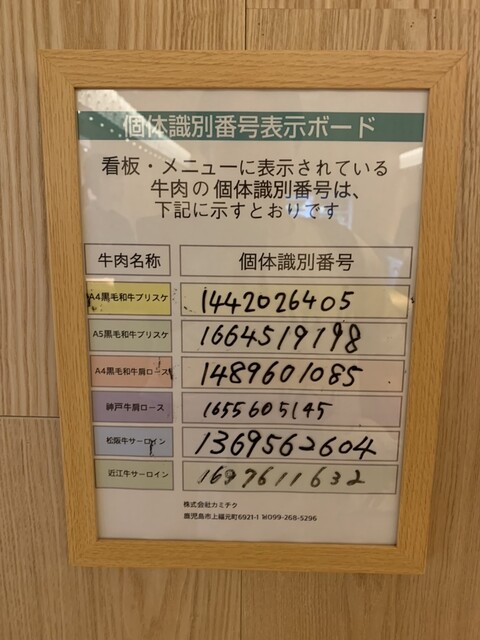 個体識別番号表示ボード
看板・メニューに表示されている
牛肉の個体識別番号は、
下記に示すとおりです
牛肉名称 個体識別番号
A4黒毛和牛ブリスケ 1442026405
A5黒毛和牛ブリスケ 1664519198
A4黒毛和牛肩ロース 1489601085
神戸牛肩ロース 1655605145
松阪牛サーロイン 1369562604
近江牛サーロイン 1697611632
株式会社カミチク
鹿児島市上福元町6921-1 ℡099-268-5296